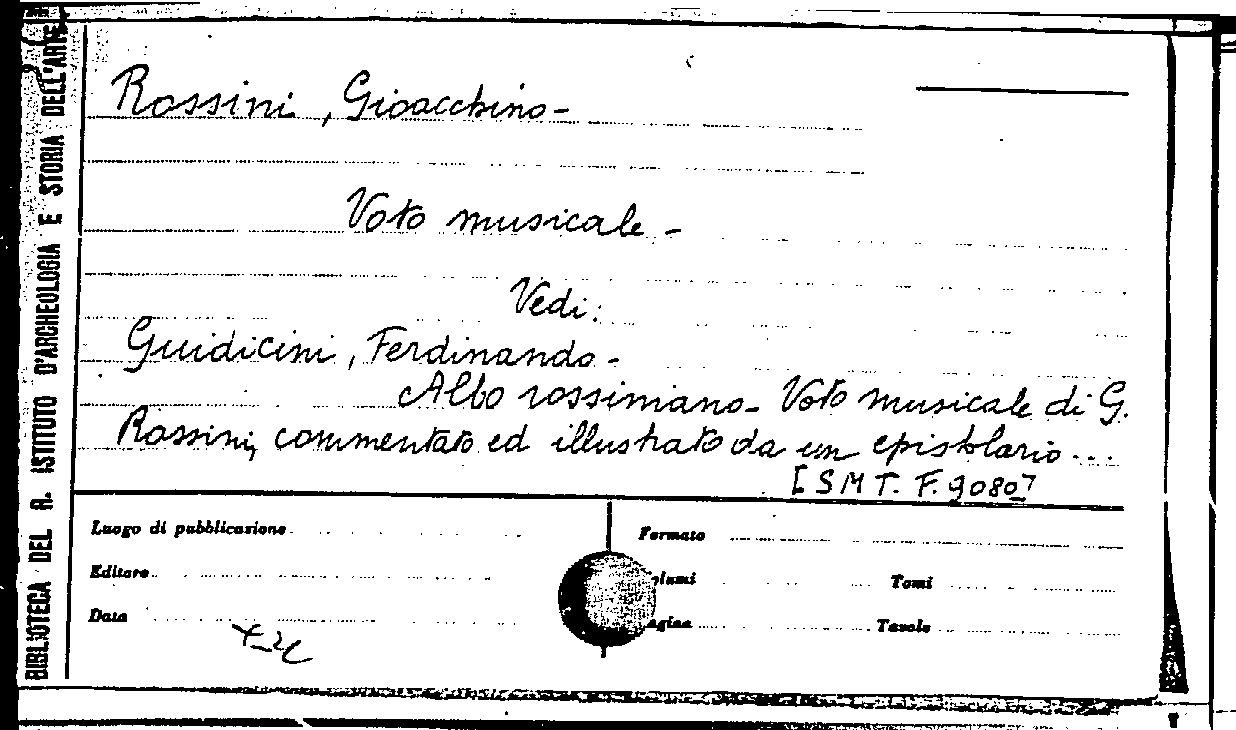 BIBLIOTECA DEL R. ISTITUTO D'ARCHEOLOGIA E STORIA DELL'ARTE
Rossini, Gioacchino-
Voto musicale.-
Vedi:
Guidicini, Ferdinando-
Albo rossiniano- Voto musicale di G.
Rossini, commentato ed illustrato da un epistolario...
[SMT. F. 9080]
Luogo di pubblicazione
Formato
Editore
olumi
Tomi
Data
agine
Tavole